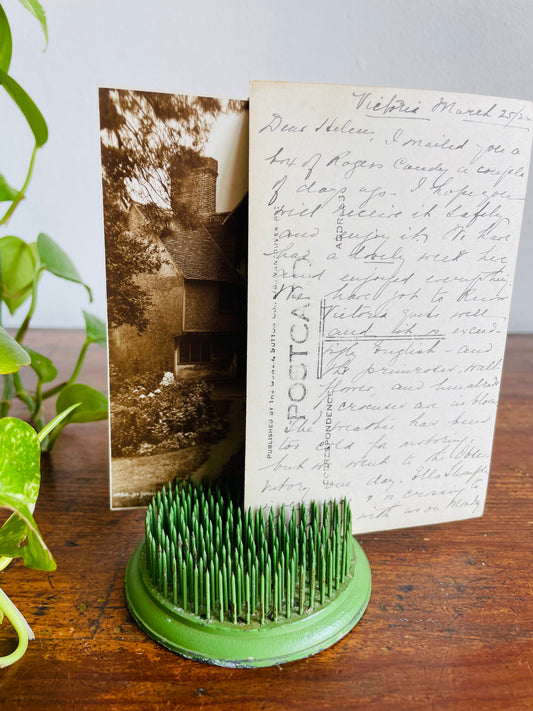 Victoria March 25
Dear Helen, I mailed you a
box of Rogers Candy a couple
of days ago. I hope you
will receive it safely
and enjoy it. We have
had a lovely week here
and enjoyed everything
We have got to know
Victoria quite well
and it is exceed
ingly English - and
the primroses, wall
flower and hundreds
of crocuses are in bloom
The weather has been
too cold for motoring,
but we went to the Obser
vatory one day.
is coming to
with us on
PUBLISHED BY THE GOWEN SUTTON CO. LTD. VANCOUVER, B.C.
POSTCA
ADDRES
CORRESPONDENCE